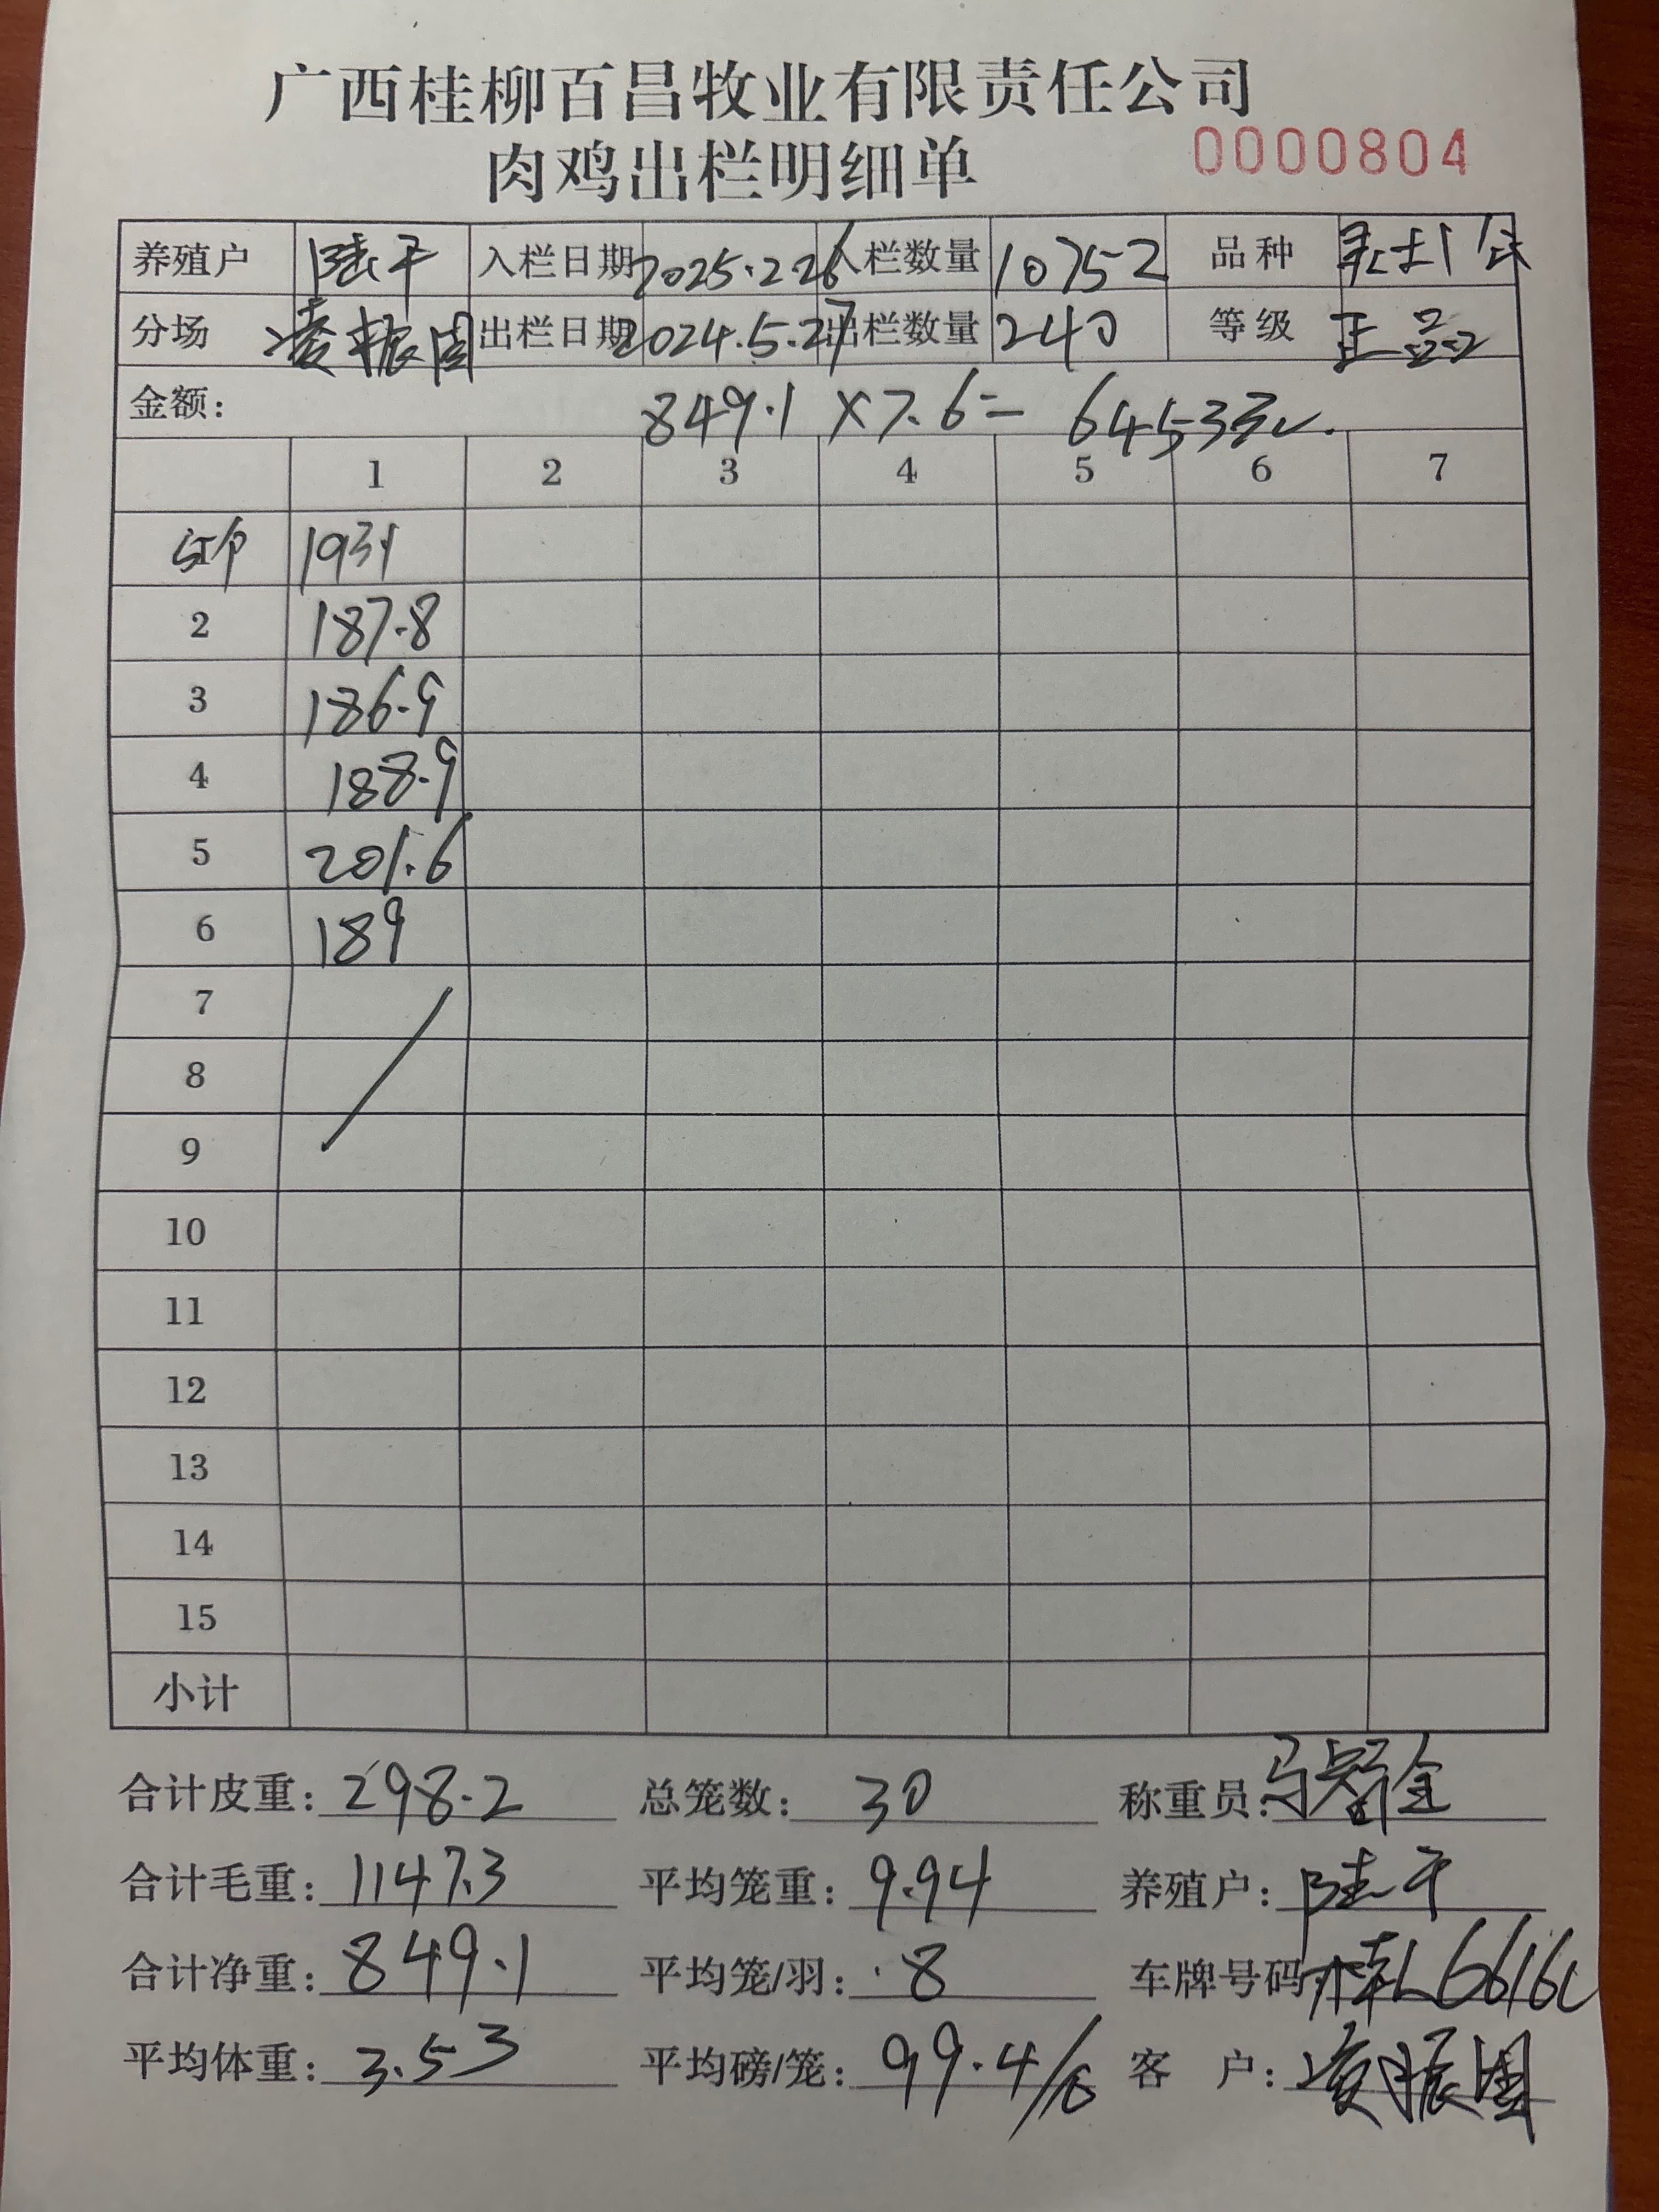 广西桂柳百昌牧业有限责任公司
肉鸡出栏明细单 0000804
养殖户 陆干 入栏日期 2025.2.26 入栏数量 10752 品种
分场 凌振国 出栏日期 2024.5.27 出栏数量 240 等级 正品
金额: 849.1 × 7.6 = 6453元.
1 2 3 4 5 6 7
193.1
2 187.8
3 186.9
4 188.9
5 201.6
6 189
7
8
9
10
11
12
13
14
15
小计
合计皮重: 298.2 总笼数: 30 称重员:
合计毛重: 1147.3 平均笼重: 9.94 养殖户: 陆干
合计净重: 849.1 平均笼/羽: 8 车牌号码:
平均体重: 3.53 平均磅/笼: 99.4/ 客 户: 凌振国